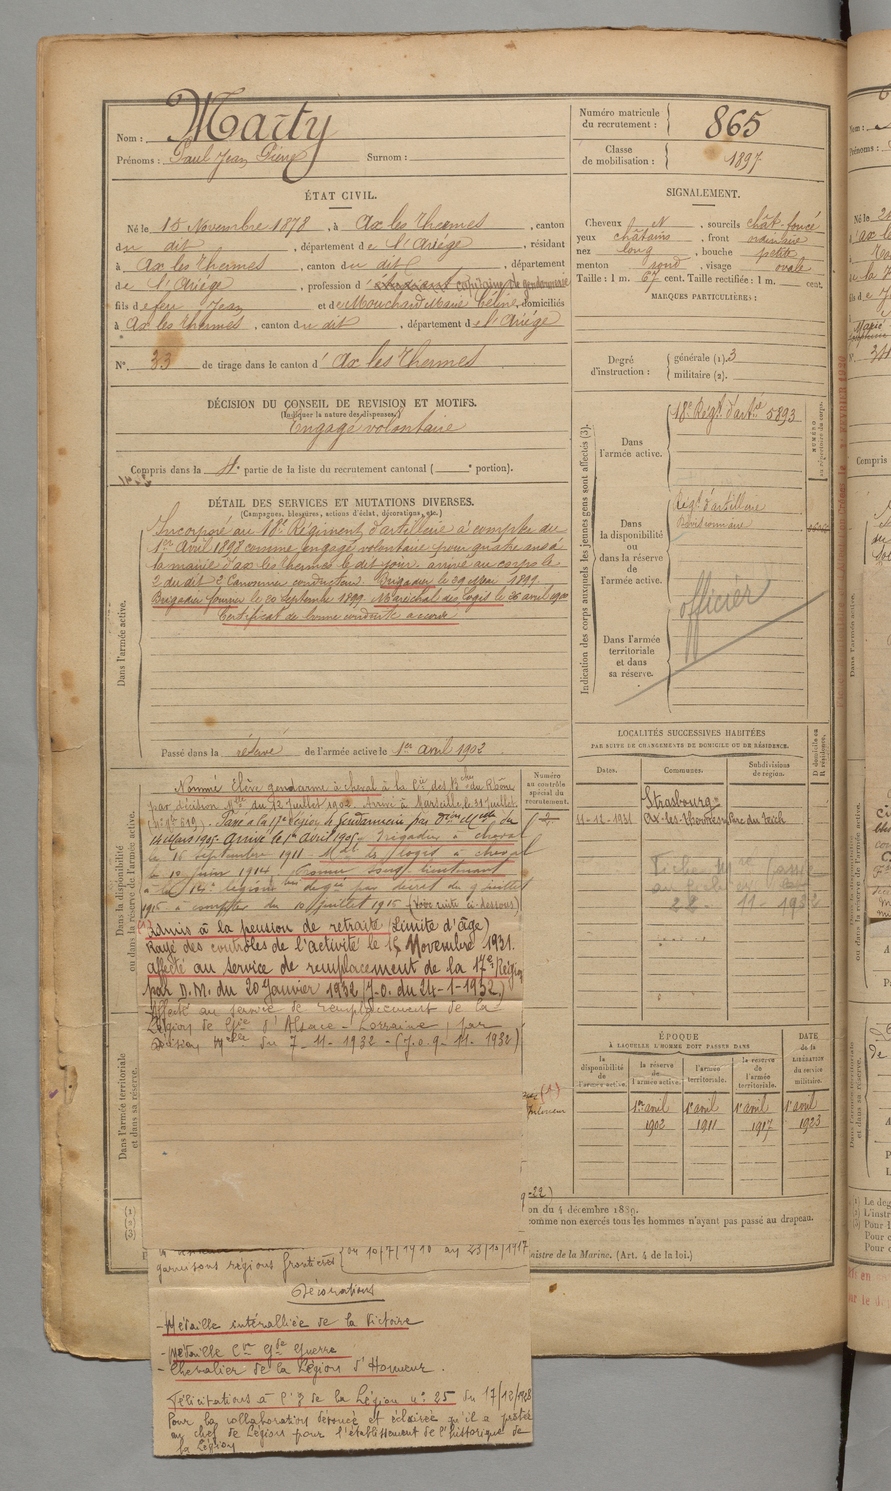 Nom : Marty
Prénoms : Paul Jean Pierre Surnom :
Numéro matricule du recrutement : 865
Classe de mobilisation : 1897
ÉTAT CIVIL.
Né le 15 Novembre 1878, à Ax les Thermes, canton
du dit, département de l'Ariège, résidant
à Ax les Thermes, canton du dit, département
de l'Ariège, profession d'étudiant capitaine de gendarmerie
fils de feu Jean et de Mouchard Marie Céline, domiciliés
à Ax les Thermes, canton du dit, département de l'Ariège
N° 33 de tirage dans le canton d'Ax les Thermes
SIGNALEMENT.
Cheveux N, sourcils chât. foncé
yeux châtains, front ordinaire
nez long, bouche petite
menton rond, visage ovale
Taille : 1 m. 67 cent. Taille rectifiée : 1 m. cent.
MARQUES PARTICULIÈRES :
Degré d'instruction : générale (1). 3
militaire (2).
DÉCISION DU CONSEIL DE REVISION ET MOTIFS.
(Indiquer la nature des dispenses.)
Engagé volontaire
Compris dans la 4e partie de la liste du recrutement cantonal ( e portion).
DÉTAIL DES SERVICES ET MUTATIONS DIVERSES.
(Campagnes, blessures, actions d'éclat, décorations, etc.)
Dans l'armée active.
Incorporé au 18e Régiment d'artillerie à compter du
1er Avril 1898 comme engagé volontaire pour quatre ans à
la mairie d'Ax les Thermes le dit jour. arrivé au corps le
2 du dit 2e Canonnier conducteur. Brigadier le 30 1899
Brigadier fourrier le 20 Septembre 1899 Maréchal des logis le 26 avril 1900
Certificat de bonne conduite accordé
Passé dans la réserve de l'armée active le 1er avril 1902
Indication des corps auxquels les jeunes gens sont affectés (3).
Dans l'armée active.
18e Régt d'artrie 5893
Dans la disponibilité ou dans la réserve de l'armée active.
Régt d'artillerie
Divisionnaire
officier
Dans l'armée territoriale et dans sa réserve.
LOCALITÉS SUCCESSIVES HABITÉES
PAR SUITE DE CHANGEMENTS DE DOMICILE OU DE RÉSIDENCE.
Dates. Communes. Subdivisions de région. D domicile ou R résidence.
Strasbourg
11-12-1931 Ax-les-Thermes
22-11-1932
Dans la disponibilité ou dans la réserve de l'armée active.
Numéro au contrôle spécial du recrutement.
Nommé Elève gendarme à cheval à la Cie des Bches du Rhône
par décision Mlle du 12 Juillet 1902. Arrivé à Marseille le 31 Juillet
Passé à la 17e Légion de Gendarmerie par Dion Mlle du
14 Mars 1905. Arrivé le 1er Avril 1905. Brigadier à cheval
le 16 Septembre 1911 Mal des logis à cheval
le 10 juin 1914. Promu sous lieutenant
à la 14e légion par décret du 9 juillet
1915 à compter du 10 juillet 1915 (Voir suite ci-dessous)
Admis à la pension de retraite (Limite d'âge)
Rayé des contrôles de l'activité le 15 Novembre 1931.
affecté au service de remplacement de la 17e Région
par D.M. du 20 Janvier 1932 (J.O. du 24-1-1932)
Affecté au service de remplacement de la
Légion de Gie d'Alsace-Lorraine, par
décision Mlle du 7-11-1932-(J.O. 9-11.1932)
Dans l'armée territoriale et dans sa réserve.
ÉPOQUE
À LAQUELLE L'HOMME DOIT PASSER DANS
la disponibilité de l'armée active. la réserve de l'armée active. l'armée territoriale. la réserve de l'armée territoriale. DATE de la LIBÉRATION du service militaire.
1er avril 1902 1er avril 1911 1er avril 1917 1er avril 1923
on du 4 décembre 1889.
comme non exercés tous les hommes n'ayant pas passé au drapeau.
nistre de la Marine. (Art. 4 de la loi.)
garnisons régions frontières du 10/7/1918 au 23/10/1917
Décorations
- Médaille interalliée de la Victoire
- Médaille Cve Gde Guerre
- Chevalier de la Légion d'Honneur.
Félicitations à l'O de la Légion n° 25 du 17/12/1928
Pour la collaboration dévouée et éclairée qu'il a prêtée
au chef de Légion pour l'établissement de l'historique de
la Légion